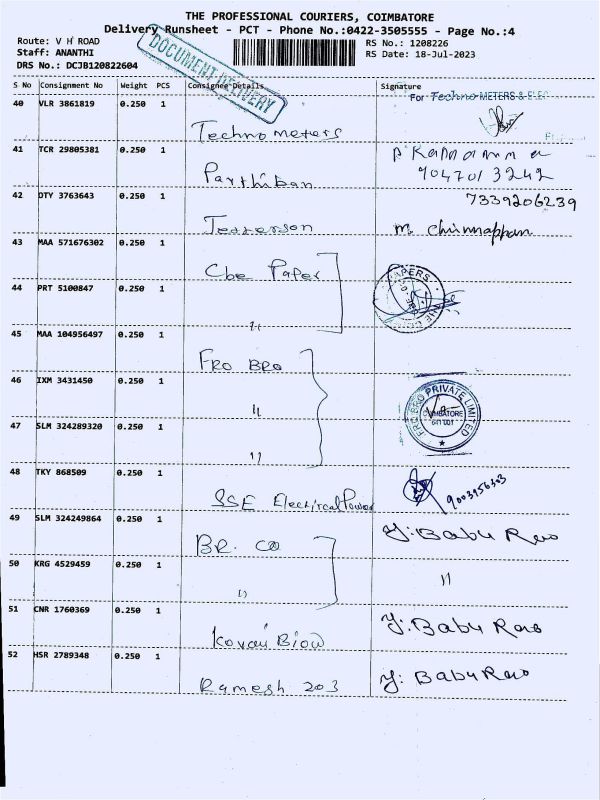 THE PROFESSIONAL COURIERS, COIMBATORE
Delivery Runsheet - PCT - Phone No.:0422-3505555 - Page No.:4
Route: V H ROAD
RS No.: 1208226
Staff: ANANTHI
RS Date: 18-Jul-2023
DRS No.: DCJB120822604
DOCUMENT DELIVERY
S No Consignment No Weight PCS Consignee Details Signature
For Techno METERS & ELEC
40 VLR 3861819 0.250 1
Techno meters
41 TCR 29805381 0.250 1
P. Kannamma
Parthiban 9047013242
42 DTY 3763643 0.250 1
7339206239
M. Chinnappan
43 MAA 571676302 0.250 1
Cbe Paper
44 PRT 5100847 0.250 1
PAPERS
"
45 MAA 104956497 0.250 1
FRO BRO
46 IXM 3431450 0.250 1
"
FRO BRO PRIVATE LIMITED
COIMBATORE
641 001
47 SLM 324289320 0.250 1
"
48 TKY 868509 0.250 1
SSE Electircal Power
9003956303
49 SLM 324249864 0.250 1
BR. CO
Y. Babu Rao
50 KRG 4529459 0.250 1
" "
51 CNR 1760369 0.250 1
Kovai Y. Babu Rao
52 HSR 2789348 0.250 1
Ramesh 203 Y. Babu Rao